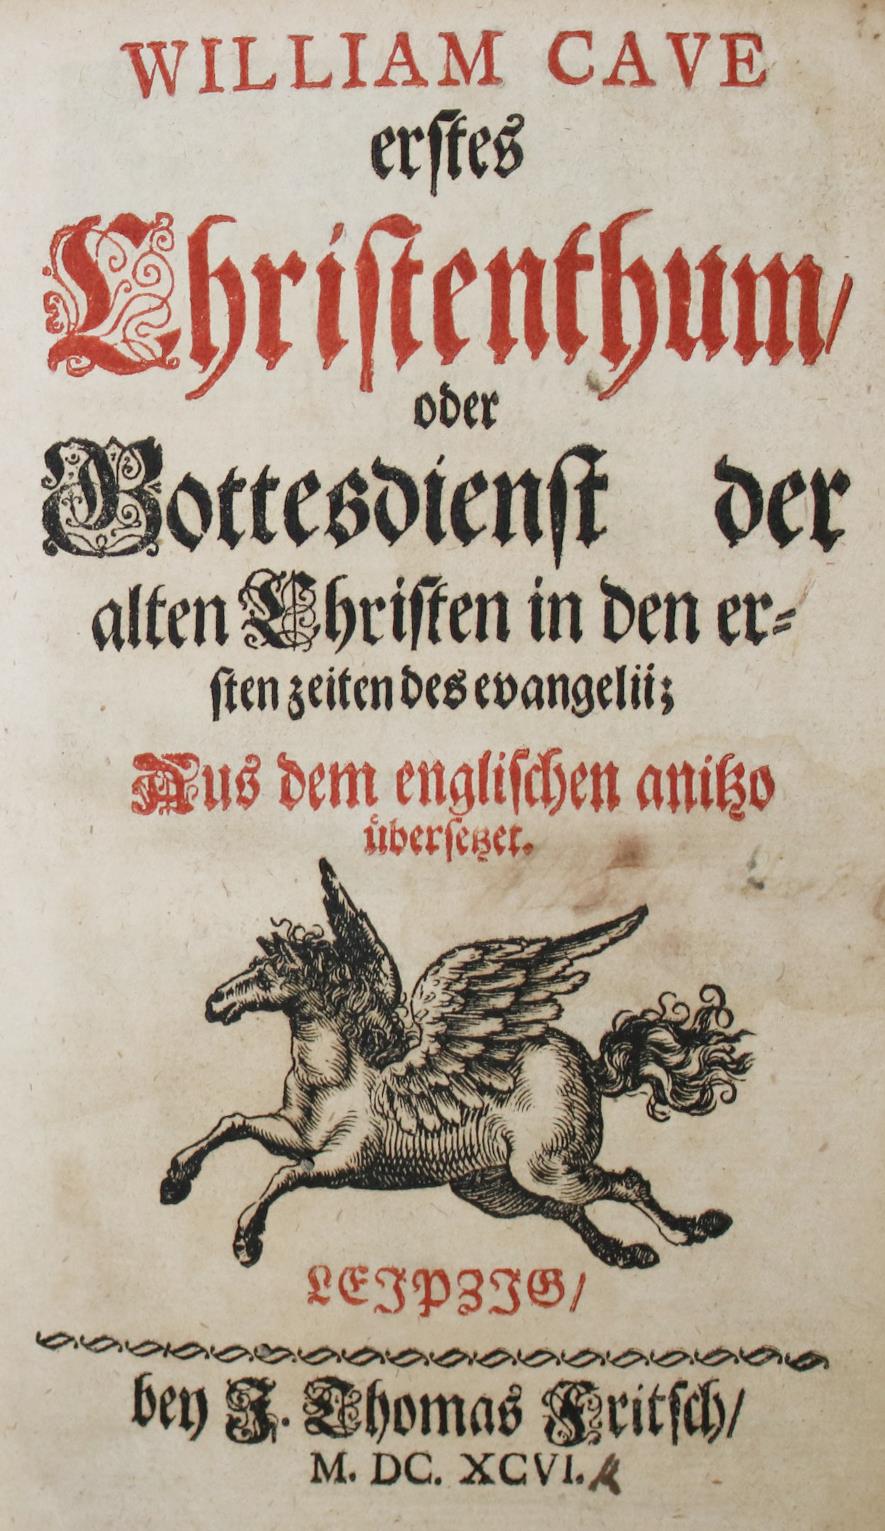 WILLIAM CAVE
erstes
Christenthum/
oder
Gottesdienst der
alten Christen in den er⸗
sten zeiten des evangelii;
Aus dem englischen anitzo
uͤbersetzet.
LEJPZJG/
bey J. Thomas Fritsch/
M. DC. XCVI.